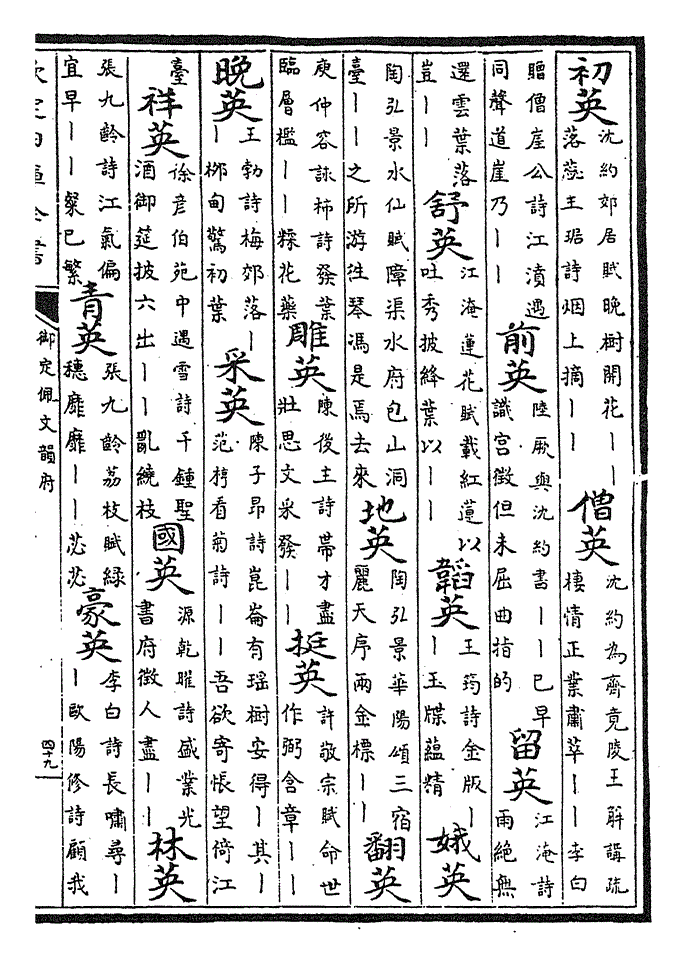 初英沈約郊居賦晚樹開花丨丨落蕊王琚詩烟上摘丨丨僧英沈約為齊竟陵王解講疏棲情正業肅萃丨丨李白
贈僧崖公詩江濆遇同聲道崖乃丨丨前英陸厥與沈約書丨丨已早識宫徵但未屈曲指的留英江淹詩雨絶無
還雲葉落豈丨丨舒英江淹蓮花賦載紅蓮以吐秀披絳葉以丨丨韜英王筠詩金版丨丨玉牒蘊精娥英
陶弘景水仙賦障渠水府包山洞臺丨丨之所游往琴馮是焉去來地英陶弘景華陽頌三宿麗天序兩金標丨丨翻英
庾仲容詠柿詩發葉臨層檻丨丨糅花藥雕英陳後主詩帶才盡壯思文采發丨丨挺英許敬宗賦命世作弼含章丨丨
晚英王勃詩梅郊落丨丨栁甸驚初葉采英陳子昂詩崑崙有瑶樹安得丨其丨范梈看菊詩丨丨吾欲寄悵望倚江
臺祥英徐彦伯苑中遇雪詩千鍾聖酒御筵披六出丨丨亂繞枝國英源乾曜詩盛業光書府徵人盡丨丨林英
張九齡詩江氣偏宜早丨丨粲已繁青英張九齡荔枝賦緑穗靡靡丨丨苾苾豪英李白詩長嘯尋丨丨歐陽修詩顧我
欽定四庫全書
御定佩文韻府
四十九